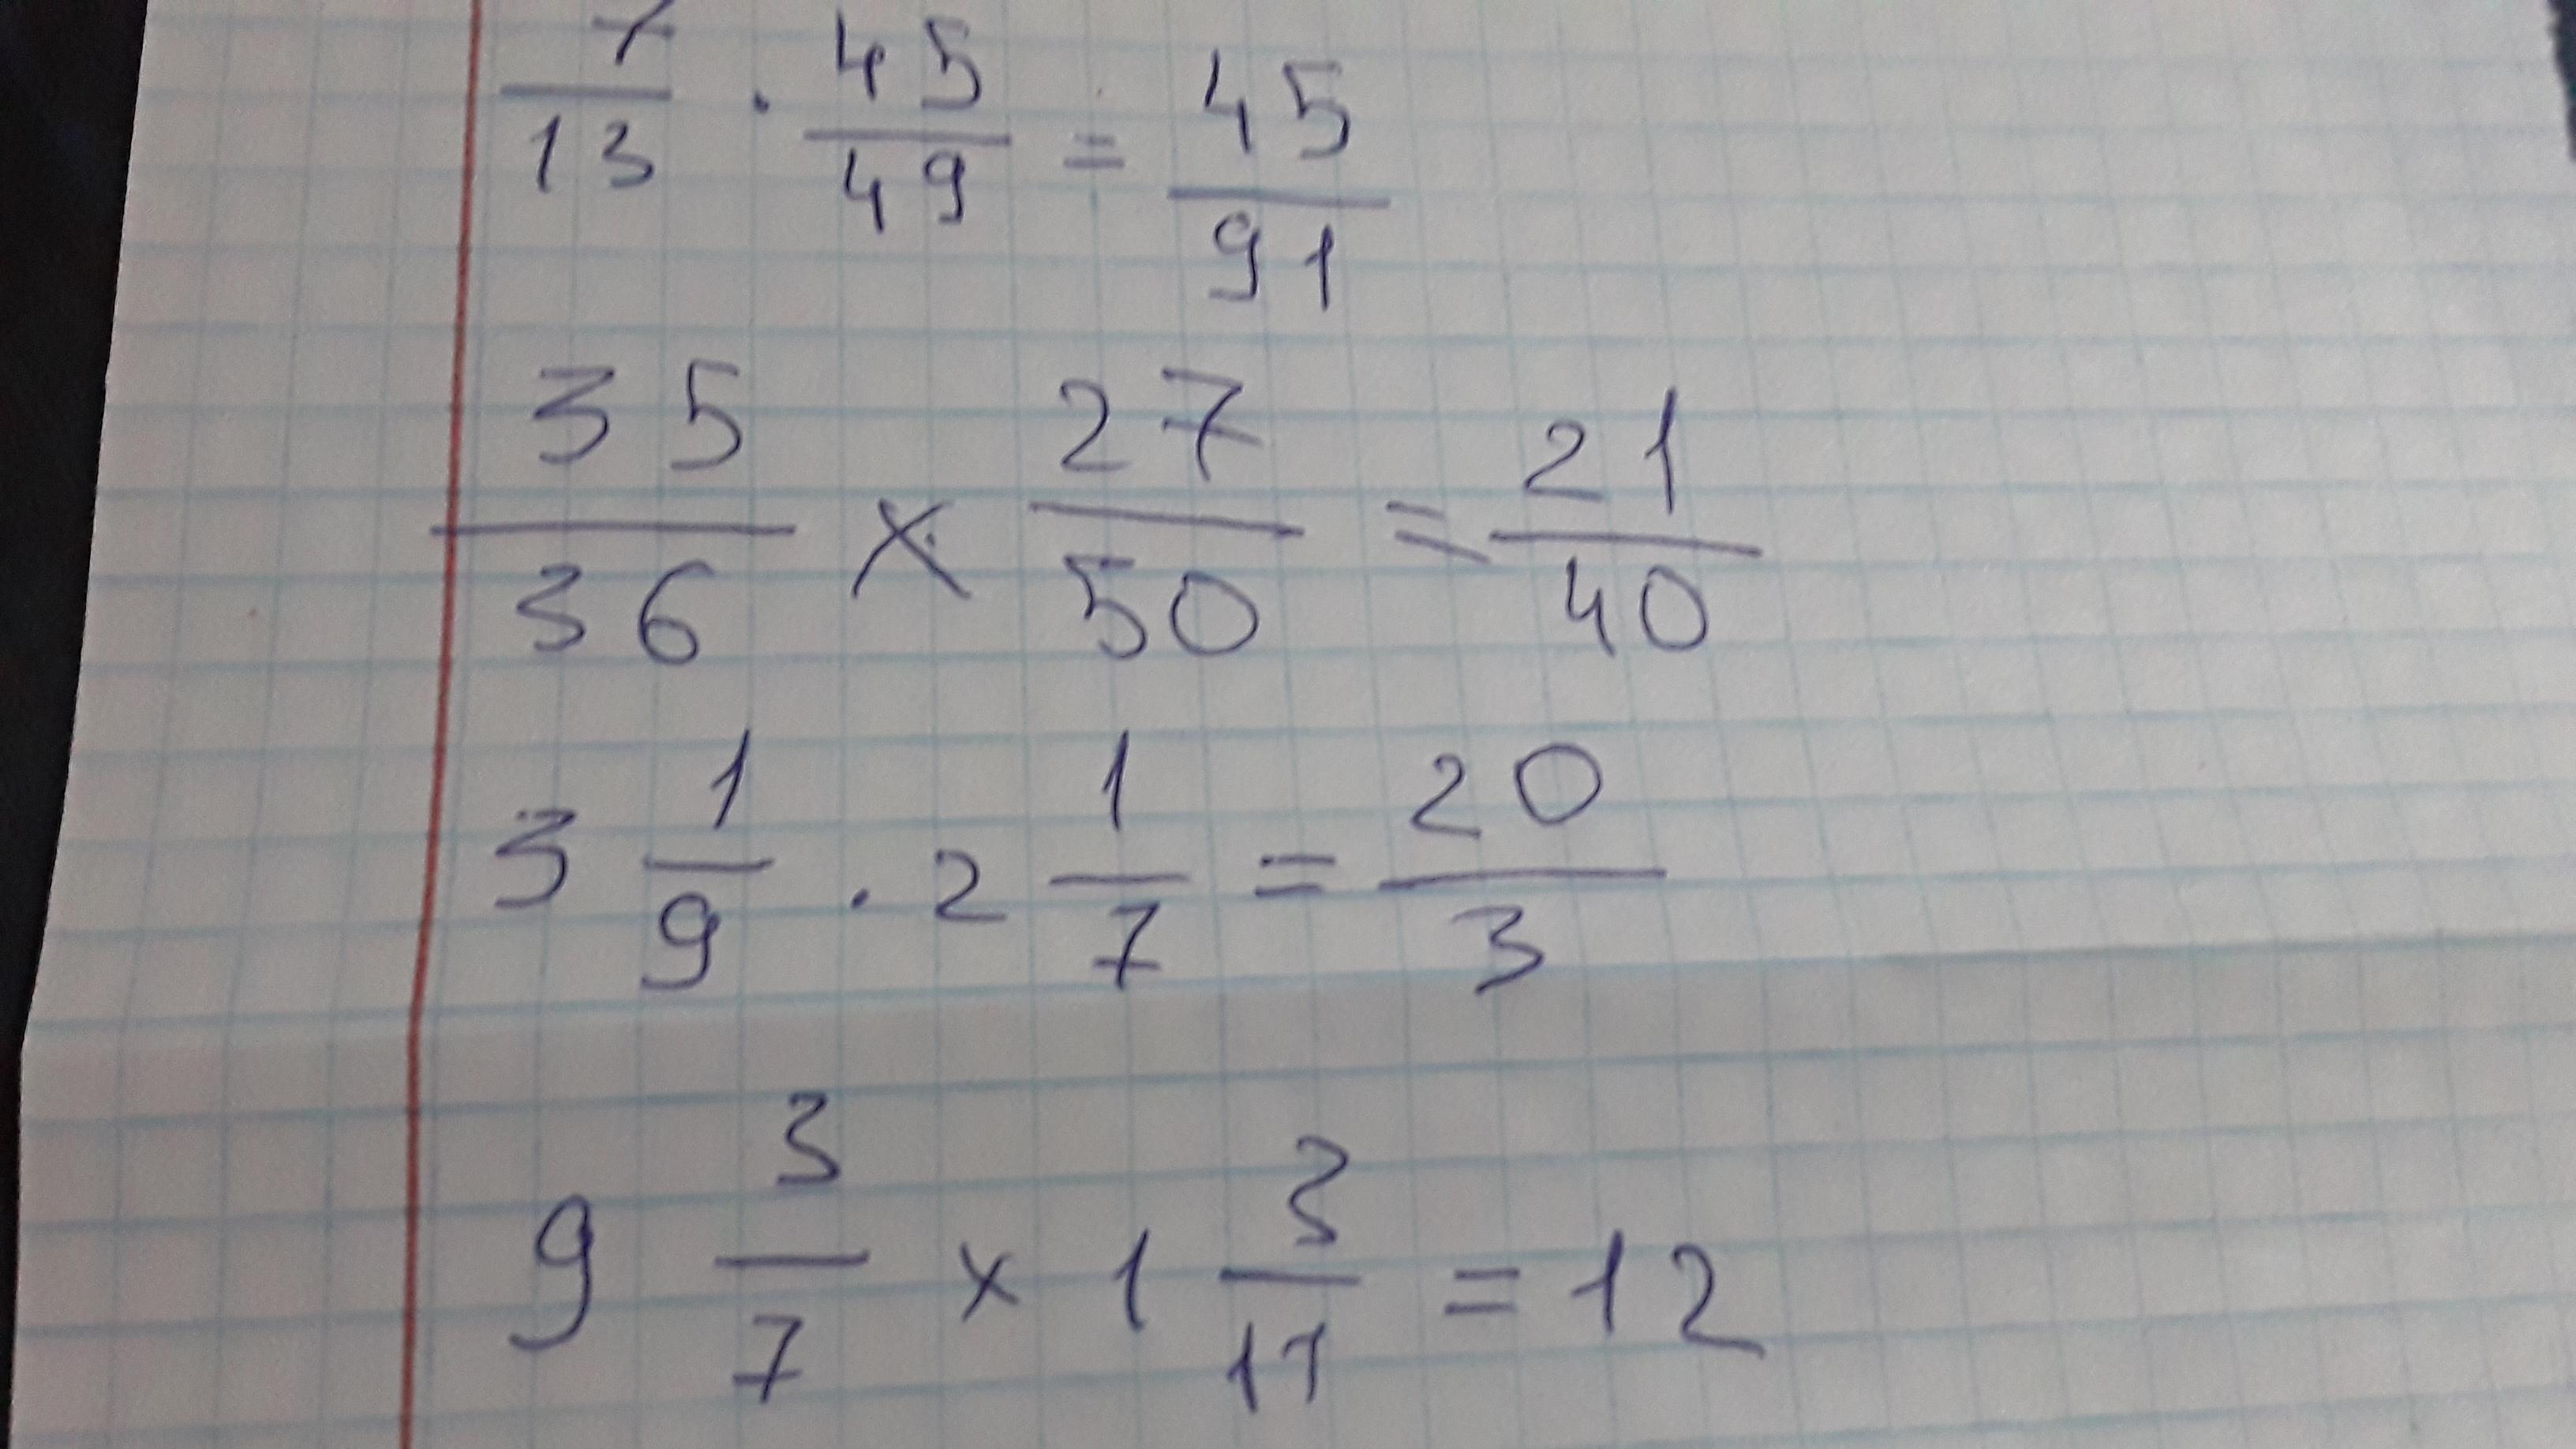 7/13 · 45/49 = 45/91
35/36 × 27/50 = 21/40
3 1/9 · 2 1/7 = 20/3
9 3/7 × 1 3/11 = 12